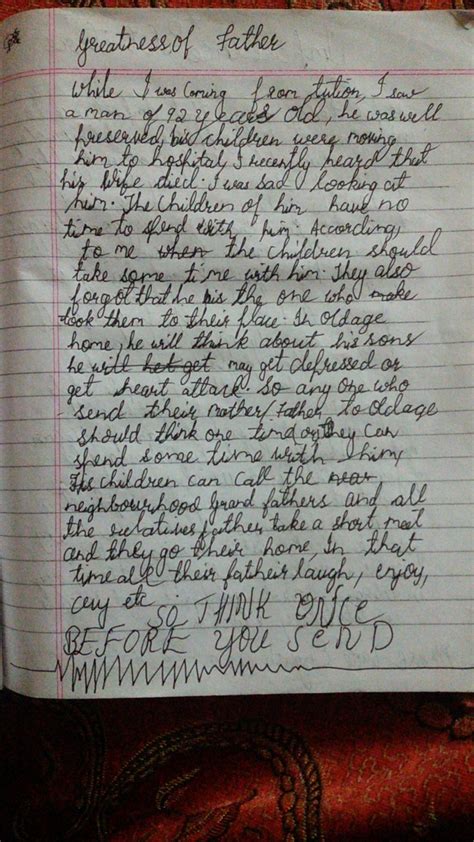 Greatness of Father
While I was Coming from tution, I saw
a man of 92 years old, he was well
preserved, his children were moving
him to hospital I recently heard that
his wife died. I was sad looking at
him. The Children of him have no
time to spend with him. According
to me when the children should
take some time with him. They also
forgot that he is the one who make
took them to their place. In oldage
home, he will think about his sons
he will get may get defressed or
get heart attack. So any one who
send their mother/Father to oldage
should think one time or they can
spend some time with him,
His children can call the near
neighbourhood grand fathers and all
the relatives father, take a short meal
and they go their home, in that
time all their father laugh, enjoy,
cery etc. SO THINK ONCE
BEFORE YOU SEND